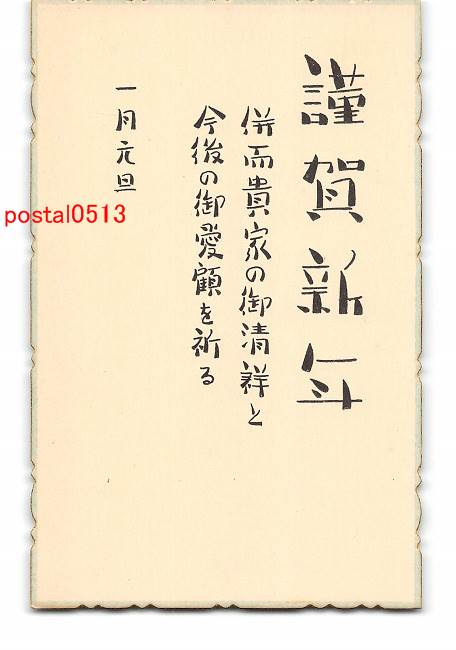 謹賀新年
併而貴家の御清祥と
今後の御愛顧を祈る
一月元旦
postal0513